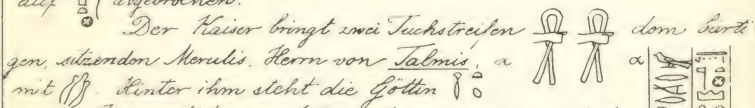 auf abgebrochen.
Der Kaiser bringt zwei Tuchstreifen dem bärti
gen, sitzenden Merulis, Herrn von Talmis, a α
mit Hinter ihm steht die Göttin